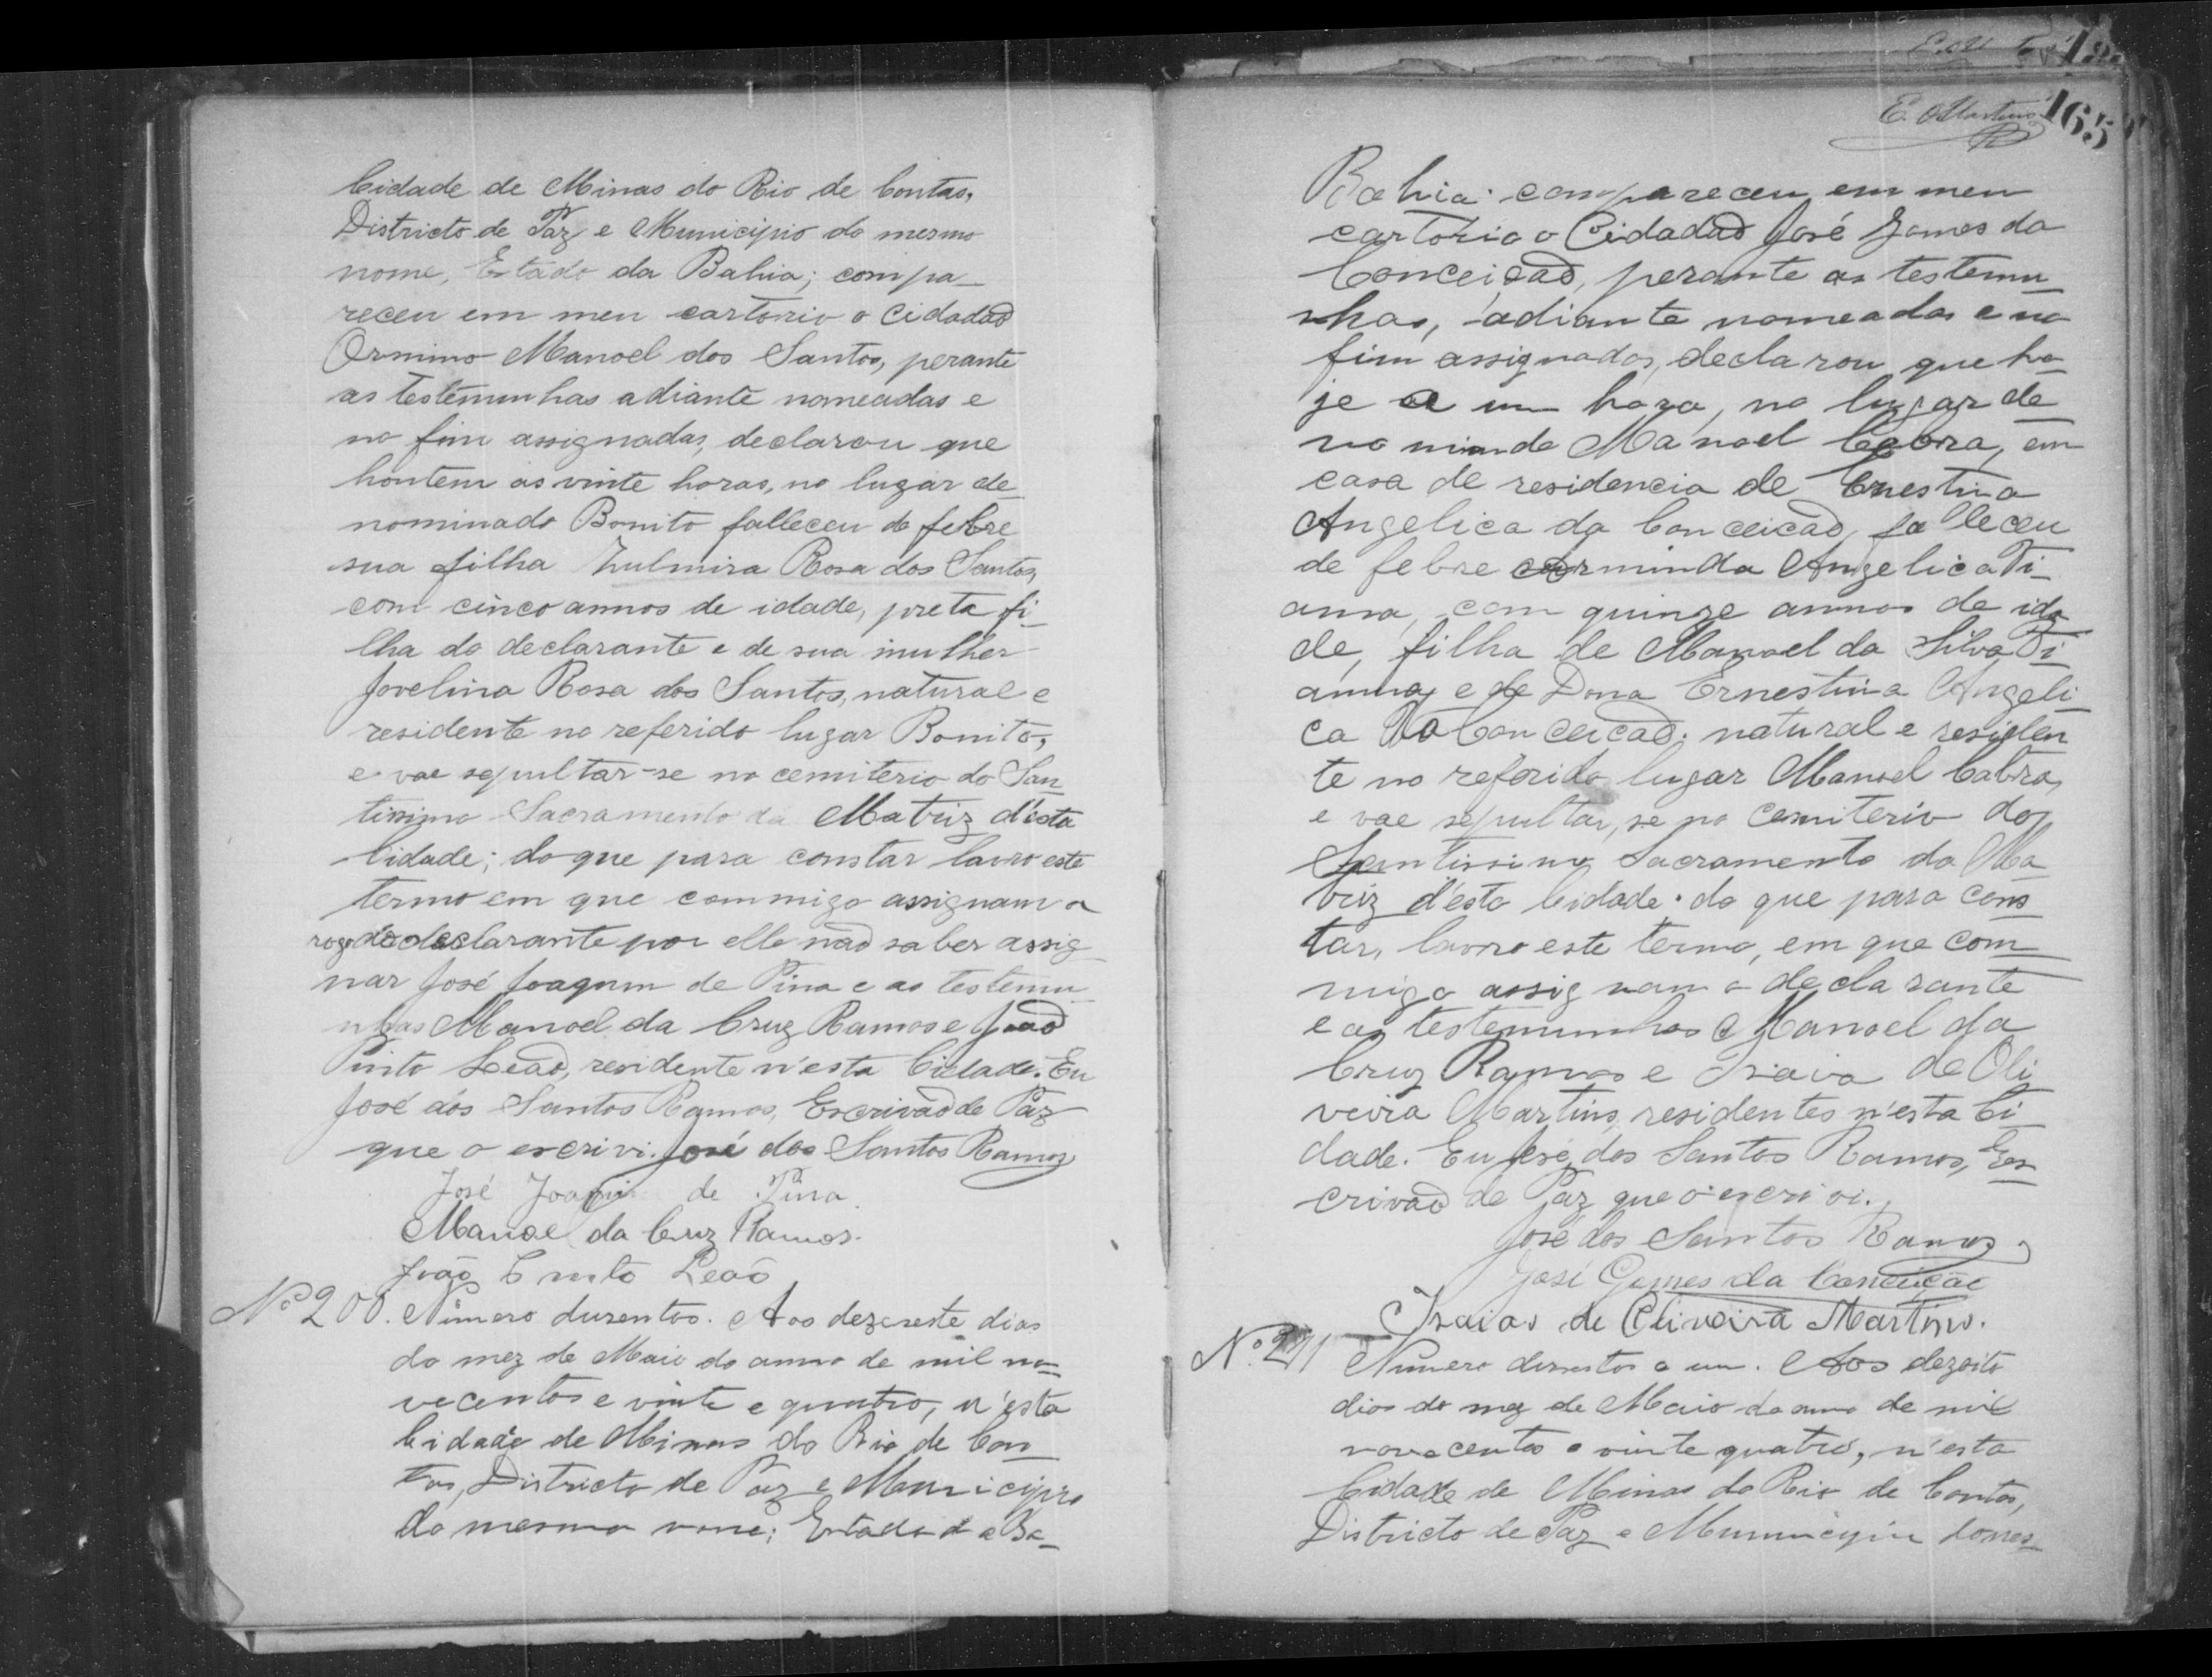 Cidade de Minas do Rio de Contas,
Districto de Paz e Municipio do mesmo
nome, Estado da Bahia; compa-
receu em meu cartorio o Cidadaõ
Manoel dos Santos, perante
as testemunhas adiante nomeadas e
no fim assignadas, declarou que
hontem as vinte horas, no lugar de-
nominado Bonito falleceu de febre
sua filha Zulmira Rosa dos Santos,
com cinco annos de idade, preta fi-
lha do declarante e de sua mulher
Jovelina Rosa dos Santos, natural e
residente no referido lugar Bonito,
e vae sepultar-se no cemiterio do San-
tissimo Sacramento da Matriz d'esta
Cidade; do que para constar lavro este
termo em que commigo assignam a
rogo do declarante por elle naõ saber assig-
nar José Joaquim de Pina e as testemu-
nhas Manoel da Cruz Ramos e Joaõ
Pinto Leaõ, residente n'esta Cidade. Eu
José dos Santos Ramos, Escrivaõ de Paz
que o escrivi. José dos Santos Ramos
José Joaquim de Pina
Manoel da Cruz Ramos.
João Pinto Leaõ
Nº 200. Número dusentos. Aos dezesete dias
do mez de Maio do anno de mil no-
vecentos e vinte e quatro, n'esta
Cidade de Minas do Rio de Con-
tas, Districto de Paz e Municipio
do mesmo nome; Estado da Ba-
E. Martins
165
Bahia. compareceu em meu
cartorio o Cidadaõ José Gomes da
Conceiçaõ, perante as testemu-
nhas, adiante nomeadas e no
fim assignadas, declarou que ho-
je a um hora, no lugar de-
nominado Manoel Cabra, em
casa de residencia de Ernestina
Angelica da Conceicaõ, falleceu
de febre Arminda Angelica Vi-
anna, com quinze annos de ida-
de, filha de Manoel da Silva Vi-
anna, e de Dona Ernestina Angeli-
ca da Conceicaõ, natural e residen-
te no referido lugar Manoel Cabra,
e vae sepultar, se no cemiterio do
Santissimo Sacramento da Ma-
triz d'esta Cidade. do que para cons-
tar, lavro este termo, em que com-
migo assignam o declarante
e as testemunhas Manoel da
Cruz Ramos e Isaias de Oli-
veira Martins, residentes n'esta Ci-
dade. Eu José dos Santos Ramos, Es-
crivaõ de Paz que o escrivi.
José dos Santos Ramos
José Gomes da Conceição
Isaias de Oliveira Martins.
Nº 201 Número dusentos e um. Aos dezoito
dias do mez de Maio do anno de mil
novecentos e vinte quatro, n'esta
Cidade de Minas do Rio de Contas,
Districto de Paz e Municipio do mes-